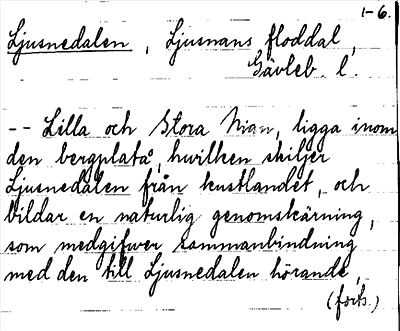 1-6.
Ljusnedalen, Ljusnans floddal,
Gävleb. l.
-- Lilla och Stora Nian, ligga inom
den bergplatå, hvilken skiljer
Ljusnedalen från kustlandet, och
bildar en naturlig genomskärning,
som medgifver sammanbindning
med den till Ljusnedalen hörande,
(forts.)